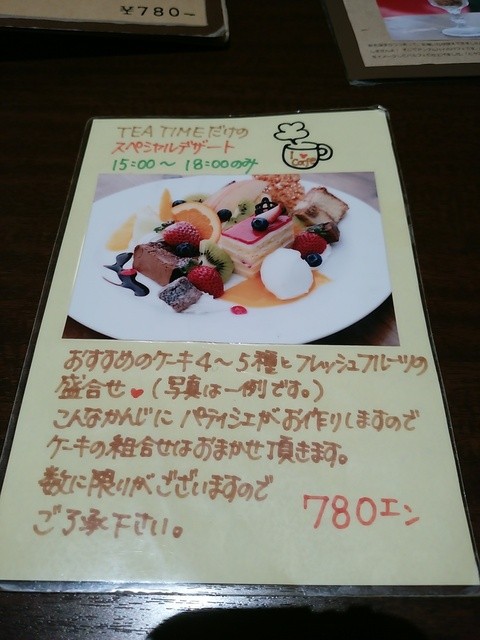 ¥780～
TEA TIMEだけの
スペシャルデザート
15:00～ 18:00のみ
I ♥
Cafe
おすすめのケーキ4～5種とフレッシュフルーツの
盛合せ♥(写真は一例です。)
こんなかんじに パティシエがお作りしますので
ケーキの組合せはおまかせ頂きます。
数に限りがございますので
ご了承下さい。
780エン